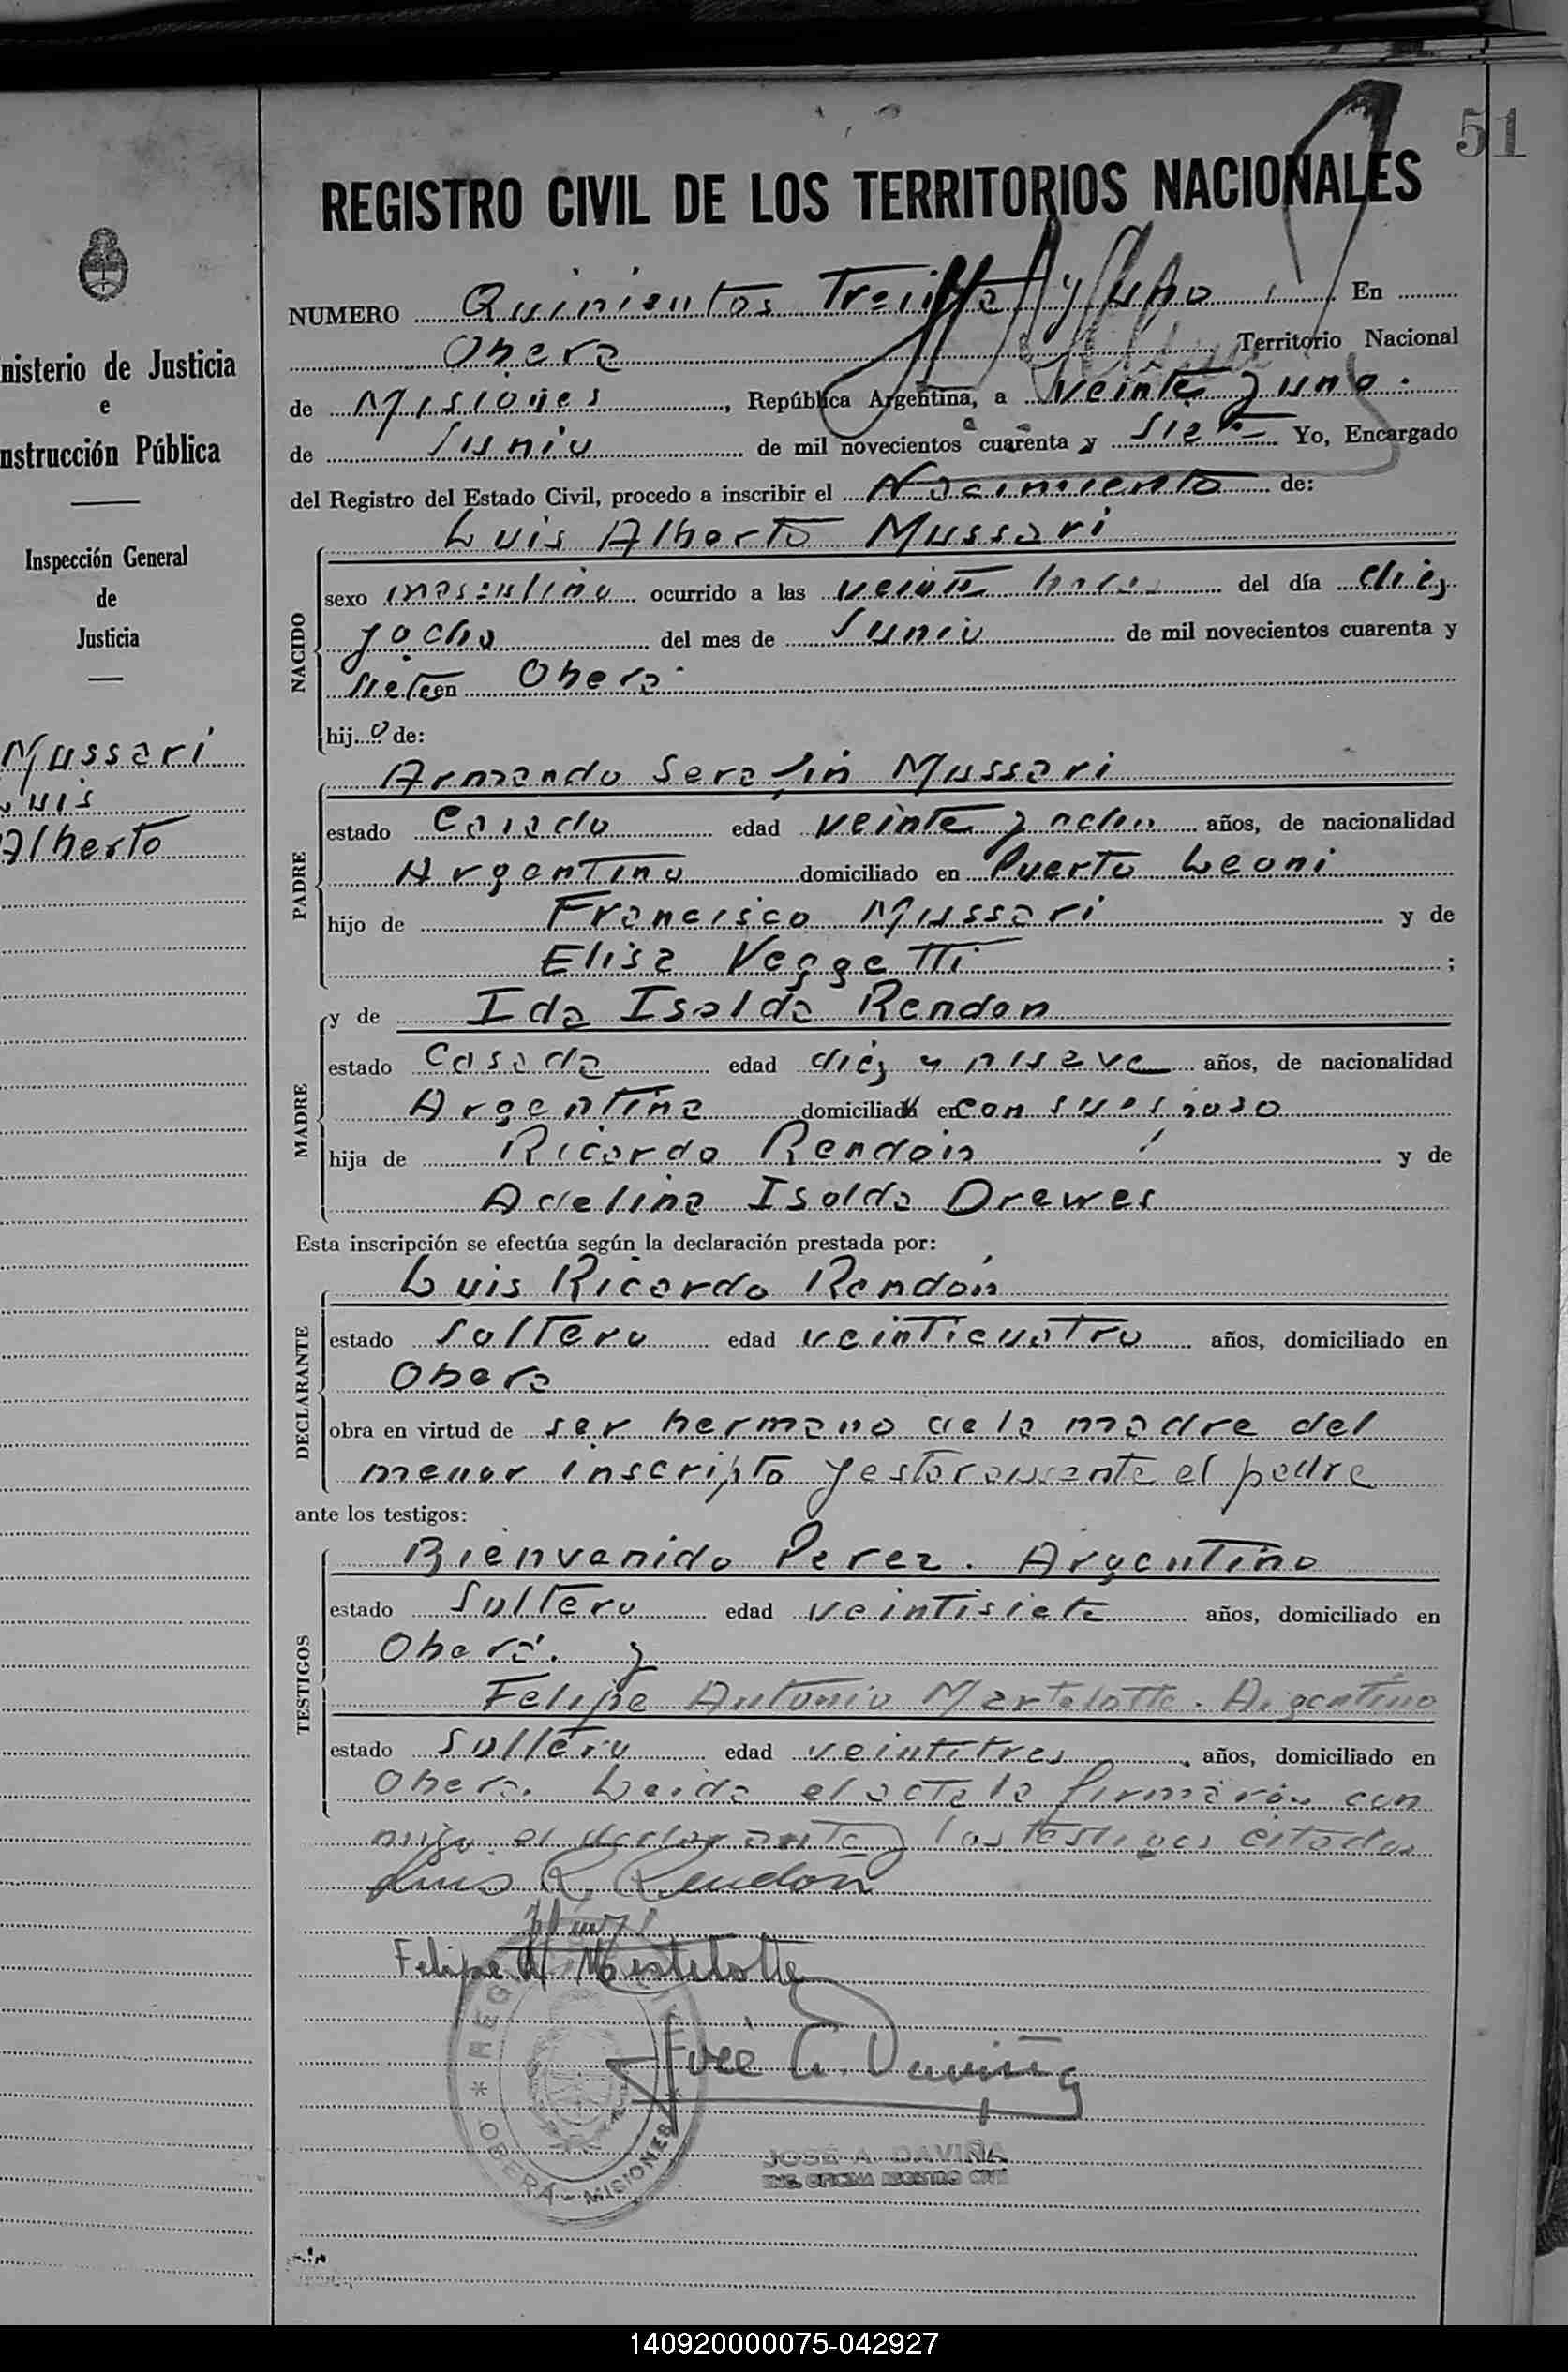 51
REGISTRO CIVIL DE LOS TERRITORIOS NACIONALES
NUMERO Quinientos Treinta y Uno En
Obera Territorio Nacional
de Misiones, República Argentina, a veinte y uno.
de Junio de mil novecientos cuarenta y Siete Yo, Encargado
del Registro del Estado Civil, procedo a inscribir el Nacimiento de:
nisterio de Justicia
e
nstrucción Pública
Inspección General
de
Justicia
Mussari
Luis
Alberto
NACIDO
Luis Alberto Mussari
sexo masculino ocurrido a las veinte horas del día diez
y ocho del mes de Junio de mil novecientos cuarenta y
Siete en Obera
hijo de:
PADRE
Armando Serafin Mussari
estado Casado edad veinte y ocho años, de nacionalidad
Argentino domiciliado en Puerto Leoni
hijo de Francisco Mussari y de
Elisa Veggetti ;
MADRE
y de Ida Isolda Rendon
estado Casada edad diez y nueve años, de nacionalidad
Argentina domiciliada en con su esposo
hija de Ricardo Rendón y de
Adelina Isolda Drewes
Esta inscripción se efectúa según la declaración prestada por:
DECLARANTE
Luis Ricardo Rendón
estado Soltero edad veinticuatro años, domiciliado en
Obera
obra en virtud de ser hermano de la madre del
menor inscripto y estar ausente el padre
ante los testigos:
TESTIGOS
Bienvenido Perez. Argentino
estado Soltero edad veintisiete años, domiciliado en
Oberá. y
Felipe Antonio Martelotte. Argentino
estado Soltero edad veintitres, años, domiciliado en
Obera. Leida el acta la firmarón con
migo el declarante y los testigos citados
Luis R. Rendón
Felipe A. Martelotte
José A. Daviña
OBERÁ - MISIONES
JOSÉ A. DAVIÑA
ENC. OFICINA REGISTRO CIVIL
140920000075-042927